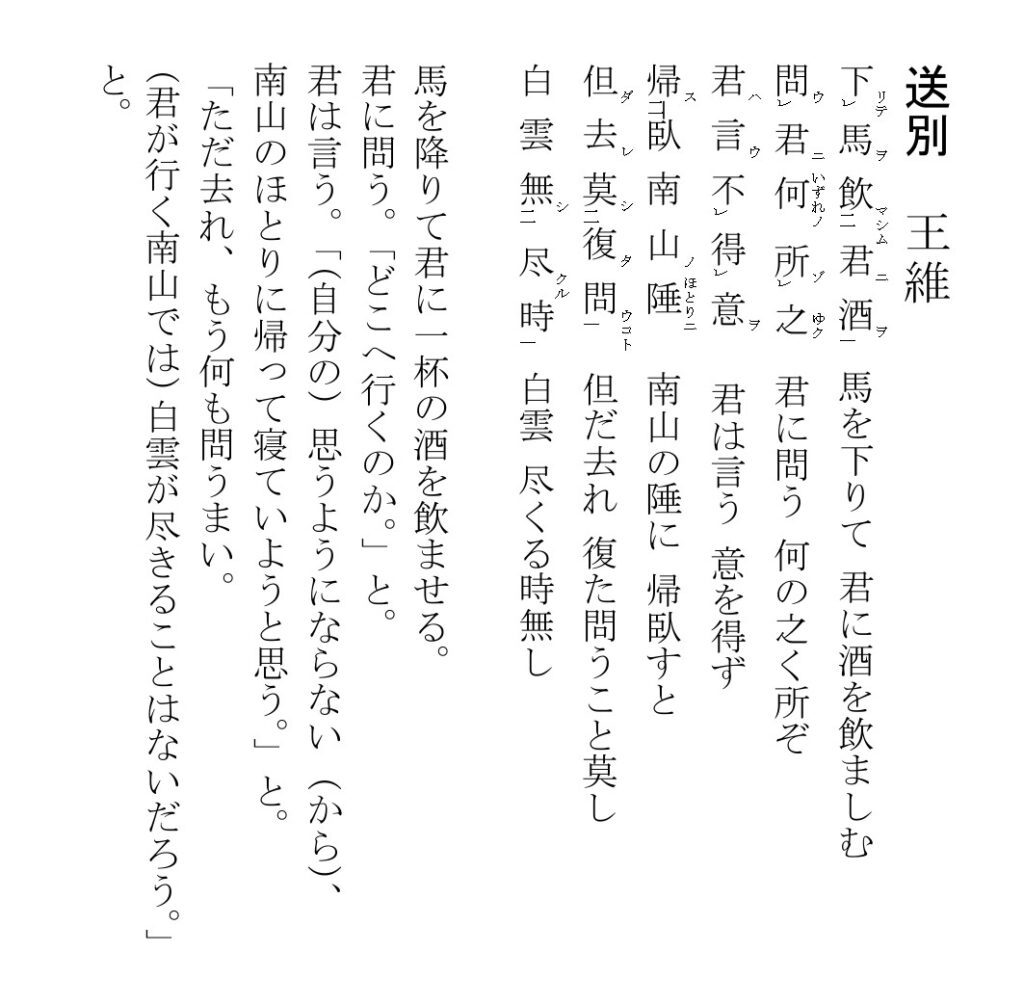 送別　王維
下リテレ馬ヲ飲マシム二君ニ酒ヲ一　馬を下りて 君に酒を飲ましむ
問ウレ君ニ何いずれノ所ゾレ之ゆク　君に問う 何の之く所ぞ
君ハ言ウ不レ得レ意ヲ　君は言う 意を得ず
帰ス臥南山ノ陲ほとりニ　南山の陲に 帰臥すと
但ダ去レ莫シ二復タ問ウコト一　但だ去れ 復た問うこと莫し
白雲無シ二尽クル時一　白雲 尽くる時無し
馬を降りて君に一杯の酒を飲ませる。
君に問う。「どこへ行くのか。」と。
君は言う。「(自分の) 思うようにならない (から)、
南山のほとりに帰って寝ていようと思う。」と。
「ただ去れ、もう何も問うまい。
(君が行く南山では) 白雲が尽きることはないだろう。」
と。